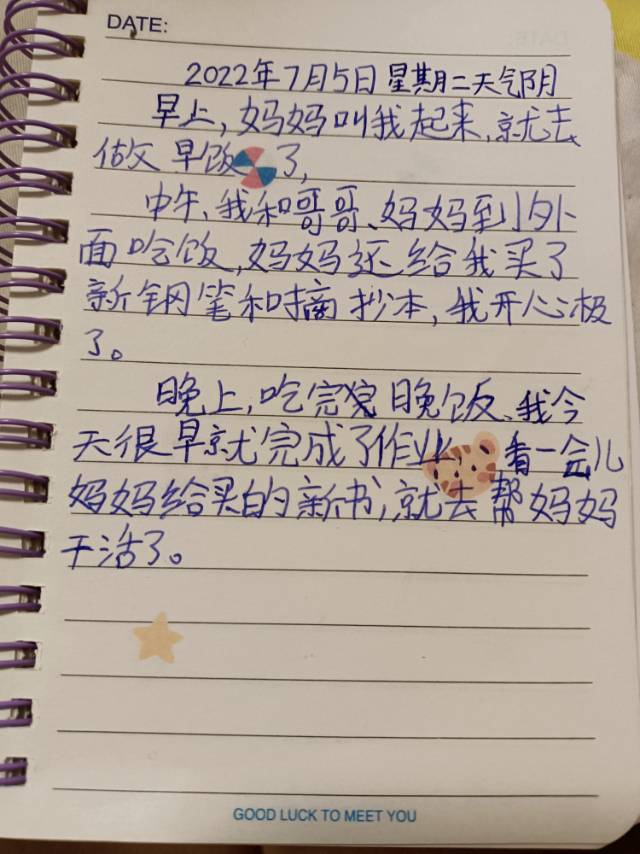 DATE:
2022年7月5日星期二天气阴
早上,妈妈叫我起来,就去
做早饭了,
中午、我和哥哥、妈妈到外
面吃饭,妈妈还给我买了
新钢笔和摘抄本,我开心极
了。
晚上,吃完晚饭、我今
天很早就完成了作业,看一会儿
妈妈给买的新书,就去帮妈妈
干活了。
GOOD LUCK TO MEET YOU